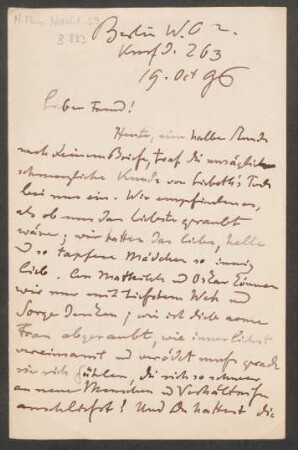 Berlin W.
19. Oct 96
Lieber Freund!
Heute, eine halbe Stunde
nach Deinem Briefe, traf die unsäglich
schmerzliche Kunde von Lisbeth's Tode
bei uns ein. Wir empfinden es,
als ob uns das Liebste geraubt
wäre; wir hatten das liebe, helle
und so tapfere Mädchen so innig
lieb. An Mathilde und Oskar können
wir nur mit tiefstem Weh und
Sorge denken; wie ist die arme
Frau abgeraubt, wie innerlichst
vereinsamt und verödet muß gerade
sie sich fühlen, die sich so schwer
an neue Menschen und Verhältnisse
anschließt! Und Du hattest die